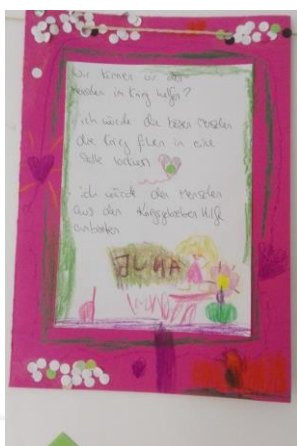 Wie können wir den
Menschen im Krieg helfen?
ich würde die bösen Menschen
die Krieg füren in eine
Falle locken
ich würde den Menschen
aus den Kriegsgebieten Hilfe
anbieten
JUNA